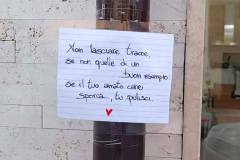 Non lasciare tracce,
se non quelle di un
buon esempio
se il tuo amato cane
sporca, tu pulisci.